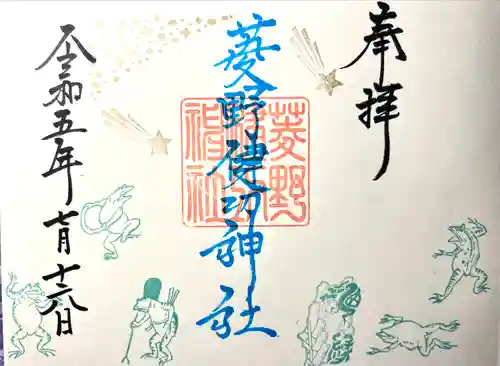 奉拝
菱野健功神社
菱野
神社
令和五年
七月十六日